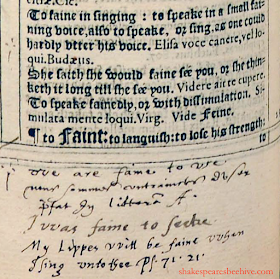 To faine in singing: to speake in a small fai=
ning voice, also to speake, or sing, as one could
hardly vtter his voice. Elisa voce canere, vel lo-
qui. Budæus.
She saith she would faine sée you, or she thin=
keth it long till she sée you. Videre ait te cupere.
To speake fainedly, or with dissimulation. Si-
mulata mente loqui. Virg. Vide Feine.
¶ to Faint: to languish: to lose his strength:
to
we are faine to vse
nous sommes contraincts d'vser
In littera A.
I was faine to seeke
My Lippes will be faine when
I sing vnto thee Ps. 71. 21.
shakespearesbeehive.com